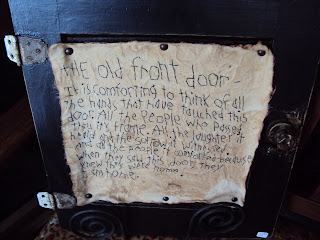 the old front door -
It is comforting to think of all
the hands that have touched this
door. All the People who Passed
thru its frame. All the laughter it
held and the sorrow it witnessed.
and all the people it comforted because
when they saw this door they
knew they were home.
I am home.